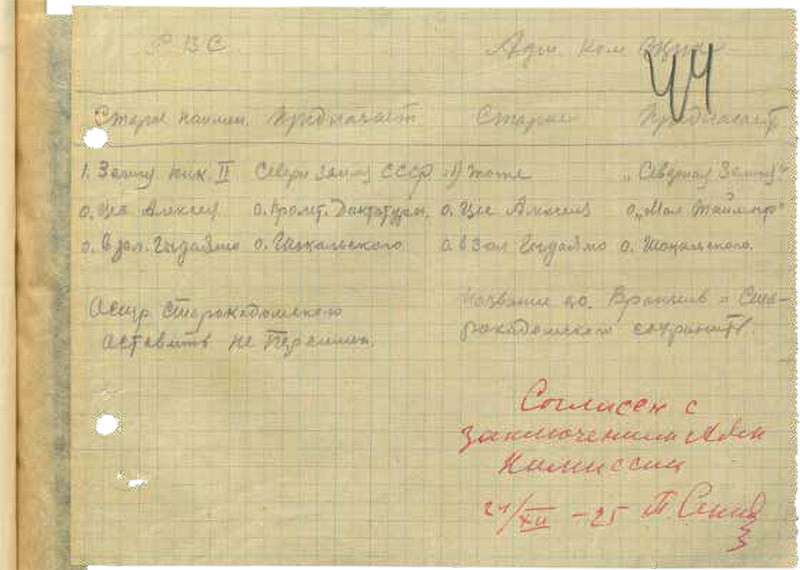 Р В С Адм. Ком ВЦИК
44
Старое наимен. Предлагает Старое Предлагает
1. Землю Ник II Северн Землю СССР 1) тоже „Северная Земля"
о. Цес Алексея о. Пролет. Диктатуры о. Цес Алексея о. „Мал Таймыр"
о. в зал. Гыдаямо о. Шокальского о. в зал Гыдаямо о. Шокальского.
Остр Старокадомского
оставить не переимен.
Название
о. Врангель и Ста-
рокадомского сохранить.
Согласен с
заключением Адм
Комиссии
21/XII – 25